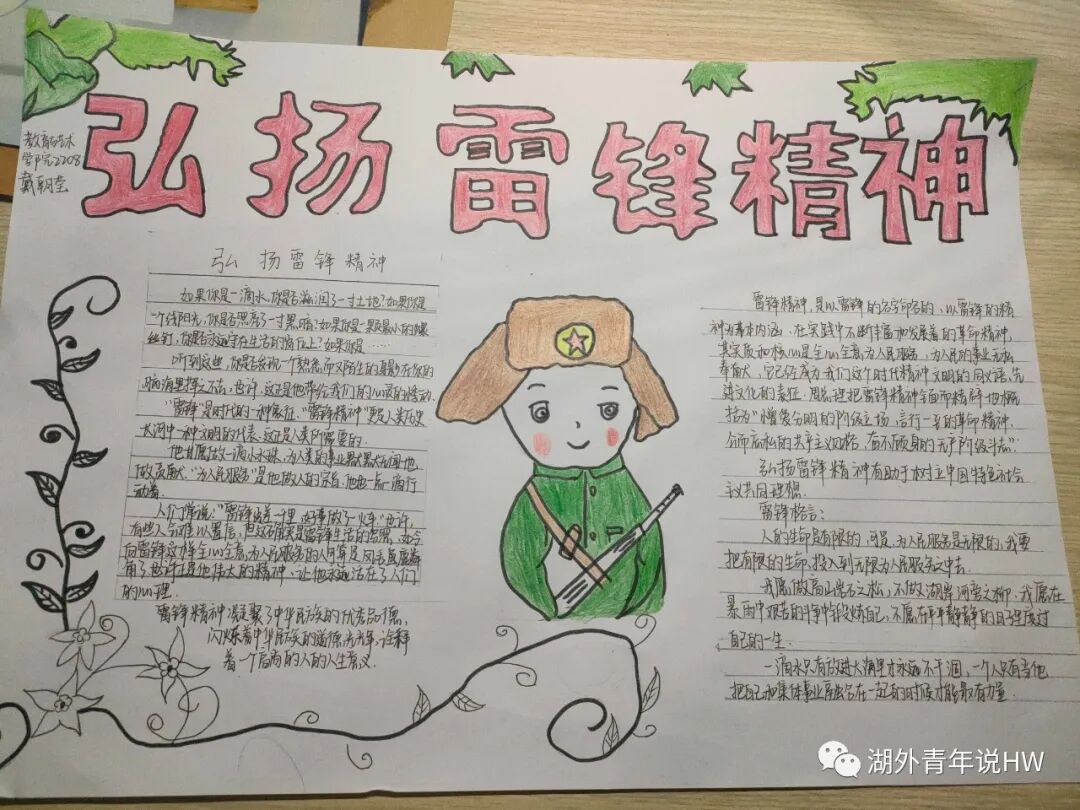 弘扬雷锋精神
教育与艺术
学院2208
戴朝莹
弘扬雷锋精神
如果你是一滴水,你是否滋润了一寸土地?如果你是
一线阳光,你是否照亮了一寸黑暗?如果你是一颗最小的螺
丝钉,你是否永远守在生活的岗位上?如果你是……
听到这些,你是否发现一个熟悉而又陌生的身影在你的
脑海里挥之不去,也许,这正是他带给我们的心灵的悸动.
"雷锋"是时代的一种象征."雷锋精神"更是人类历史
长河中一种文明的代表.这正是人类所需要的.
他甘愿做一滴小水珠.为人类的事业默默无闻地
做贡献."为人民服务"是他做人的宗旨.他也一直履行
动着.
人们常说:"雷锋出差一千里,好事做了一火车"也许,
有些人会难以置信,但这不确实是雷锋生活的写照,如今
向雷锋这样全心全意,为人民服务的人可算是凤毛麟
角了.也许这是他伟大的精神,让他永远活在了人们
的心里.
雷锋精神凝聚了中华民族的优秀品德,
闪烁着中华民族的道德光辉,诠释
着一个高尚的人的人生意义.
雷锋精神,是以雷锋的名字命名的,以雷锋的精
神为基本内涵,在实践中不断丰富和发展着的革命精神,
其实质和核心是全心全意为人民服务,为人民的事业无私
奉献.它已经成为我们这个时代精神文明的同义语,先
进文化的表征.周总理把雷锋精神全面而精辟地概
括为"憎爱分明的阶级立场、言行一至的革命精神.
公而忘私的共产主义风格、奋不顾身的无产阶级斗志".
弘扬雷锋精神有助于树立中国特色社会
主义共同理想.
雷锋格言:
人的生命是有限的,可是,为人民服务是无限的,我要
把有限的生命,投入到无限为人民服务之中去.
我愿做高山岩石之松,不做湖岸河旁之柳.我愿在
暴雨中艰苦的斗争中锻炼自己,不愿在平平静静的日子里度过
自己的一生.
一滴水只有放进大海里才永远不干涸,一个人只有当他
把自己和集体事业融合在一起的时候才能最有力量.
湖外青年说HW